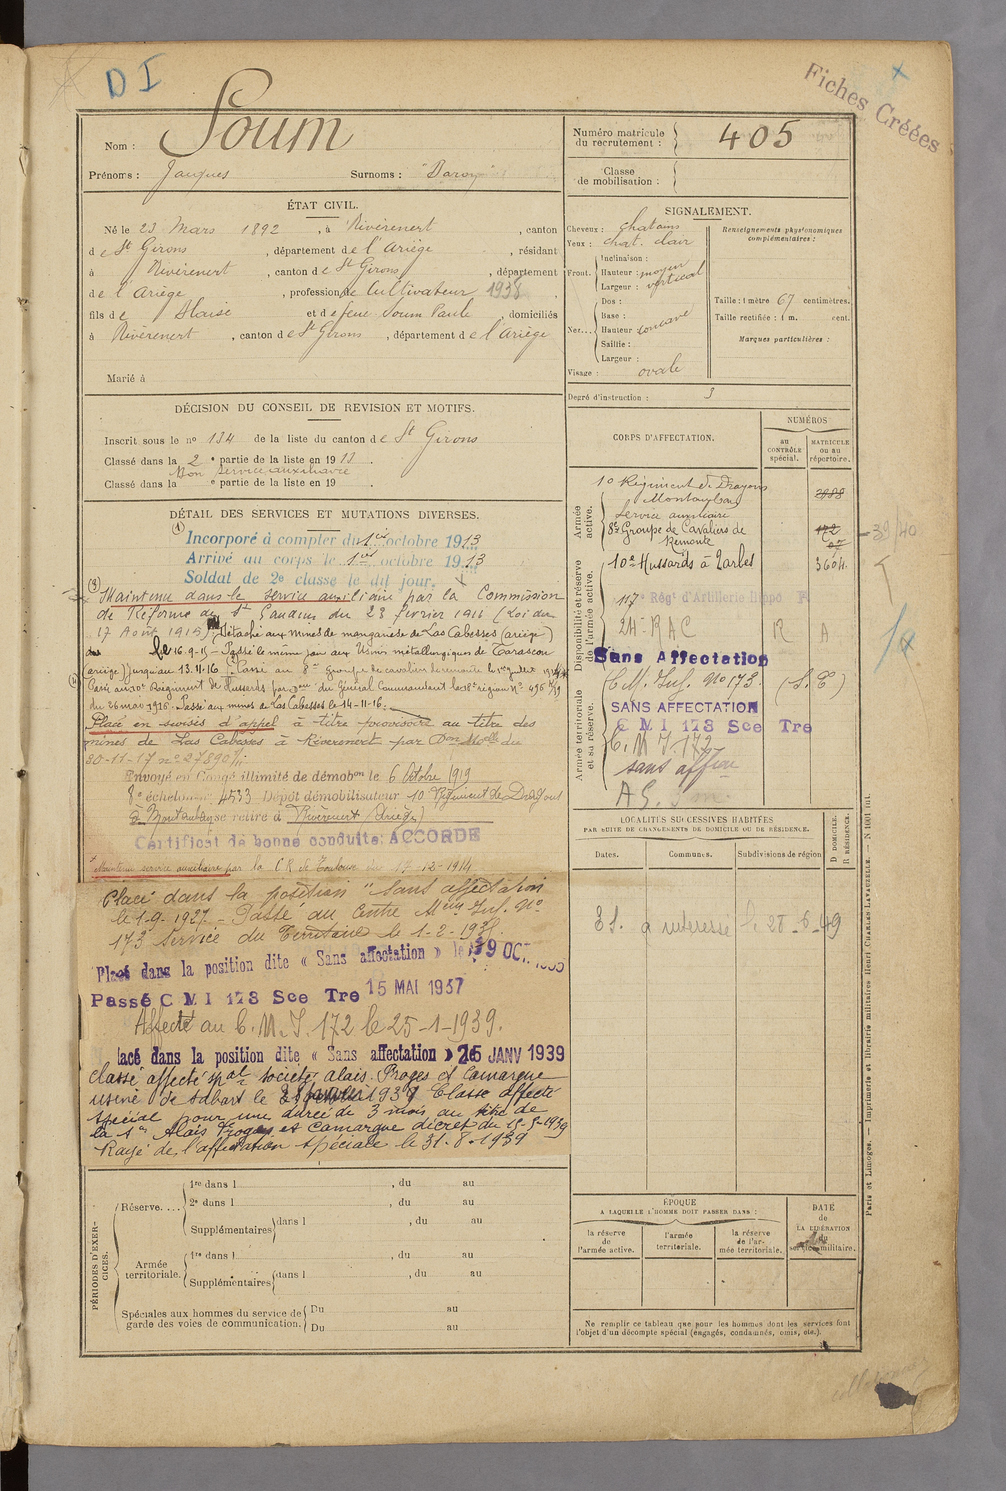 D I
Fiches Créées
Nom : Soum
Prénoms : Jacques Surnoms :
Numéro matricule
du recrutement : 405
Classe
de mobilisation :
ÉTAT CIVIL.
Né le 23 Mars 1892, à Rivèrenert, canton
de St Girons, département de l'Ariège, résidant
à Rivèrenert, canton de St Girons, département
de l'Ariège, profession de Cultivateur 1938
fils de Blaise et de feue Soum Paule, domiciliés
à Rivèrenert, canton de St Girons, département de l'Ariège
Marié à
SIGNALEMENT.
Cheveux : chatains
Yeux : chat. clair
Front. Inclinaison :
Hauteur : moyen
Largeur : vertical
Nez... Dos :
Base :
Hauteur concave
Saillie :
Largeur :
Visage : ovale
Renseignements physionomiques
complémentaires :
Taille : 1 mètre 67 centimètres.
Taille rectifiée : 1 m. cent.
Marques particulières :
Degré d'instruction : 3
DÉCISION DU CONSEIL DE REVISION ET MOTIFS.
Inscrit sous le no 134 de la liste du canton de St Girons
Classé dans la 2e partie de la liste en 1913.
Bon service auxiliaire
Classé dans la e partie de la liste en 19 .
CORPS D'AFFECTATION.
NUMÉROS
au
CONTRÔLE
spécial.
MATRICULE
ou au
répertoire.
Armée
active.
10e Régiment de Dragons
Montauban
Service auxiliaire
8e Groupe de Cavaliers de
Remonte
Disponibilité et réserve
de l'armée active.
10e Hussards à Tarbes 3604
117e Régt d'Artillerie
24 RAC R A
Sans Affectation
Armée territoriale
et sa réserve.
C.M. Inf. No 173. (S.T)
SANS AFFECTATION
C M I 173 Sce Tre
C.M.I 172
sans affon
39/40
DÉTAIL DES SERVICES ET MUTATIONS DIVERSES.
Incorporé à compter du 1er octobre 1913
Arrivé au corps le 1er octobre 1913
Soldat de 2e classe le dit jour.
Maintenu dans le service auxiliaire par la Commission
de Réforme de St Gaudens du 23 février 1916 (Loi du
17 Août 1915) Détaché aux mines de manganèse de Las Cabesses (ariège)
le 16-9-15 - Passé le même jour aux Usines métallurgiques de Tarascon
(ariège) jusqu'au 13-11-16. Passé au 8e groupe de cavaliers de remonte le 1er
Passé au 10e Régiment de Hussards par du Général Commandant la 18e région No 496
du 26 mars 1916. Passé aux mines de Las Cabesses le 14-11-16.
Placé en sursis d'appel à titre provisoire au titre des
mines de Las Cabesses à Rivèrenert par Don Melle du
30-11-17 no 27890
Envoyé en Congé illimité de démobon le 6 Octobre 1919
8e échelon no 4533 Dépôt démobilisateur 10 Régiment de Dragons
à Montauban se retire à Rivèrenert (Ariège)
Certificat de bonne conduite ACCORDÉ
Maintenu service auxiliaire par la C.R. de Toulouse du 17-12-1914
Placé dans la position "sans affectation
le 1-9-1927 - Passé au Centre Mon Inf. No
173 Service du Territoire le 1-2-193
Placé dans la position dite « Sans affectation » le 19 OCT.
Passé C M I 173 Sce Tre 15 MAI 1937
Affecté au C.M.I. 172 le 25-1-1939.
lacé dans la position dite « Sans affectation » le 25 JANV 1939
classé affecté spal societe alais. Froges et Camargue
usine de Sabart le 193 Classe affecté
spécial pour une durée de 3 mois au titre de
la Sté Alais Froges et Camargue décret du 1939
Rayé de l'affectation spéciale le 31-8-1939
LOCALITÉS SUCCESSIVES HABITÉES
PAR SUITE DE CHANGEMENTS DE DOMICILE OU DE RÉSIDENCE.
Dates. Communes. Subdivisions de région
D DOMICILE.
R RÉSIDENCE.
le 28-6-49
PÉRIODES D'EXERCICES.
Réserve.... 1re dans l , du au
2e dans l , du au
Supplémentaires dans l , du au
Armée
territoriale. 1re dans l , du au
Supplémentaires dans l , du au
Spéciales aux hommes du service de
garde des voies de communication. Du au
Du au
ÉPOQUE
A LAQUELLE L'HOMME DOIT PASSER DANS :
la réserve
de
l'armée active.
l'armée
territoriale.
la réserve
de l'ar-
mée territoriale.
DATE
de
LA LIBÉRATION
du
service militaire.
Ne remplir ce tableau que pour les hommes dont les services font
l'objet d'un décompte spécial (engagés, condamnés, omis, etc.).
Paris et Limoges. — Imprimerie et librairie militaires Henri CHARLES-LAVAUZELLE. — N 1001 int.